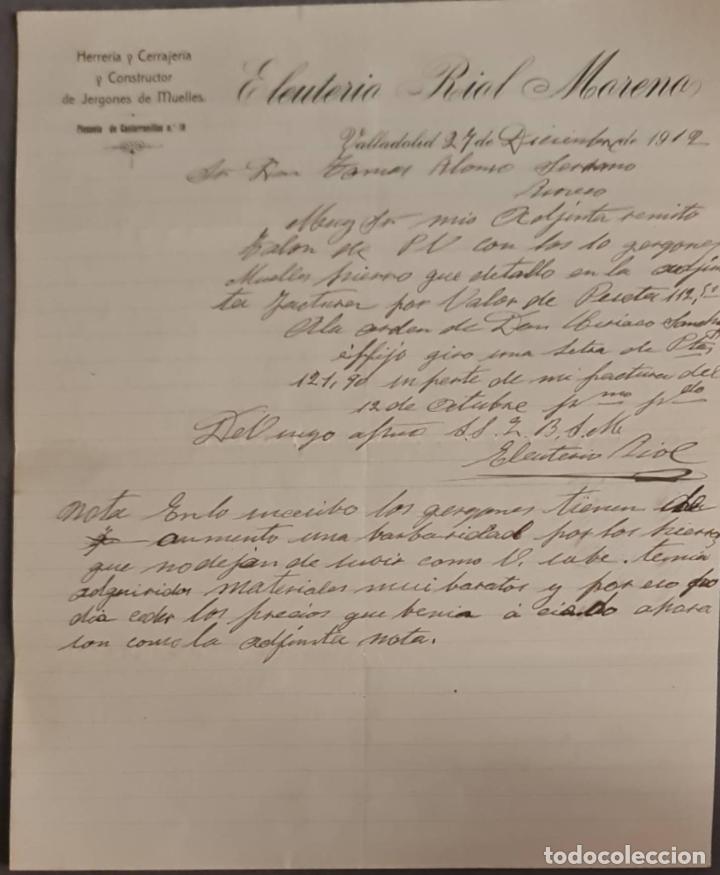 Herrería y Cerrajería
y Constructor
de Jergones de Muelles.
Plazuela de Cantarranillas n.º 19
Eleuterio Riol Moreno
Valladolid 27 de Diciembre de 1912
Sr Don Tomas Alonso Serrano
Rioseco
Muy Sr mio Adjinta remito
talon de PV con los 10 gergones
Muelles hierro que detallo en la adjin
ta factura por Valor de Peseta 112,50
A la orden de Don Ciriaco Sanche
é hijo giro una letra de Ptas
121,90 inporte de mi factura del
12 de octubre
De V suyo afmo S. S. Q. B. S. M.
Eleuterio Riol
Nota En lo sucesibo los gergones tienen de
aumento una barbaridad por los hierro
que no dejan de subir como V. sabe. tenia
adquiridos materiales mui baratos y por eso po
dia ceder los precios que benia á ciendo ahora
son como la adjinta nota.
todocoleccion
todocoleccion.net